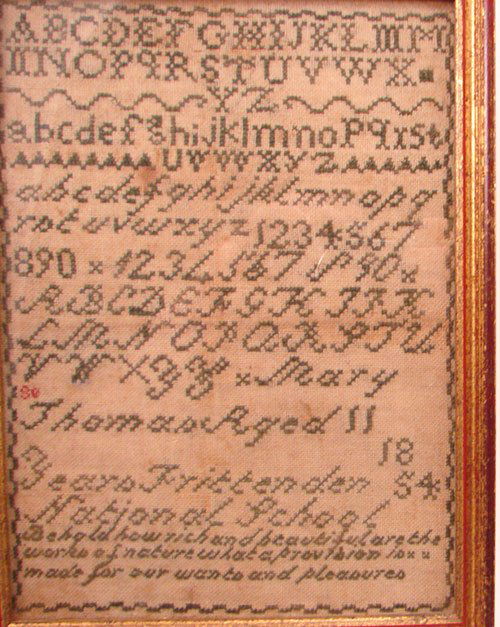 ABCDEFGHIJKLM
NOPQRSTUVWX
YZ
abcdefghijklmnopqrst
uvwxyz
abcdefghijklmnopq
rstuvwxyz1234567
890x1234567890x
ABCDEFGHIJK
LMNOPQRSTU
VWXYZxMary
Thomas Aged 11
18
Years Frittenden 54
National School
Behold how rich and beautiful are the
works of nature what a provision
made for our wants and pleasures